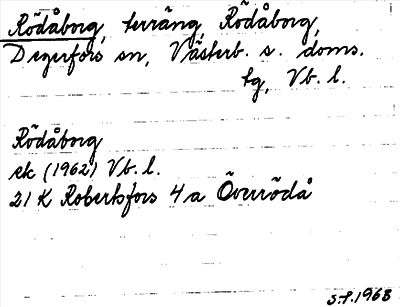 Rödåborg, terräng, Rödåborg,
Degerfors sn, Västerb. s. doms.
tg, Vb. l.
Rödåborg
ek (1962) Vb. l.
21 K Robertsfors 4 a Överrödå
S.P. 1968